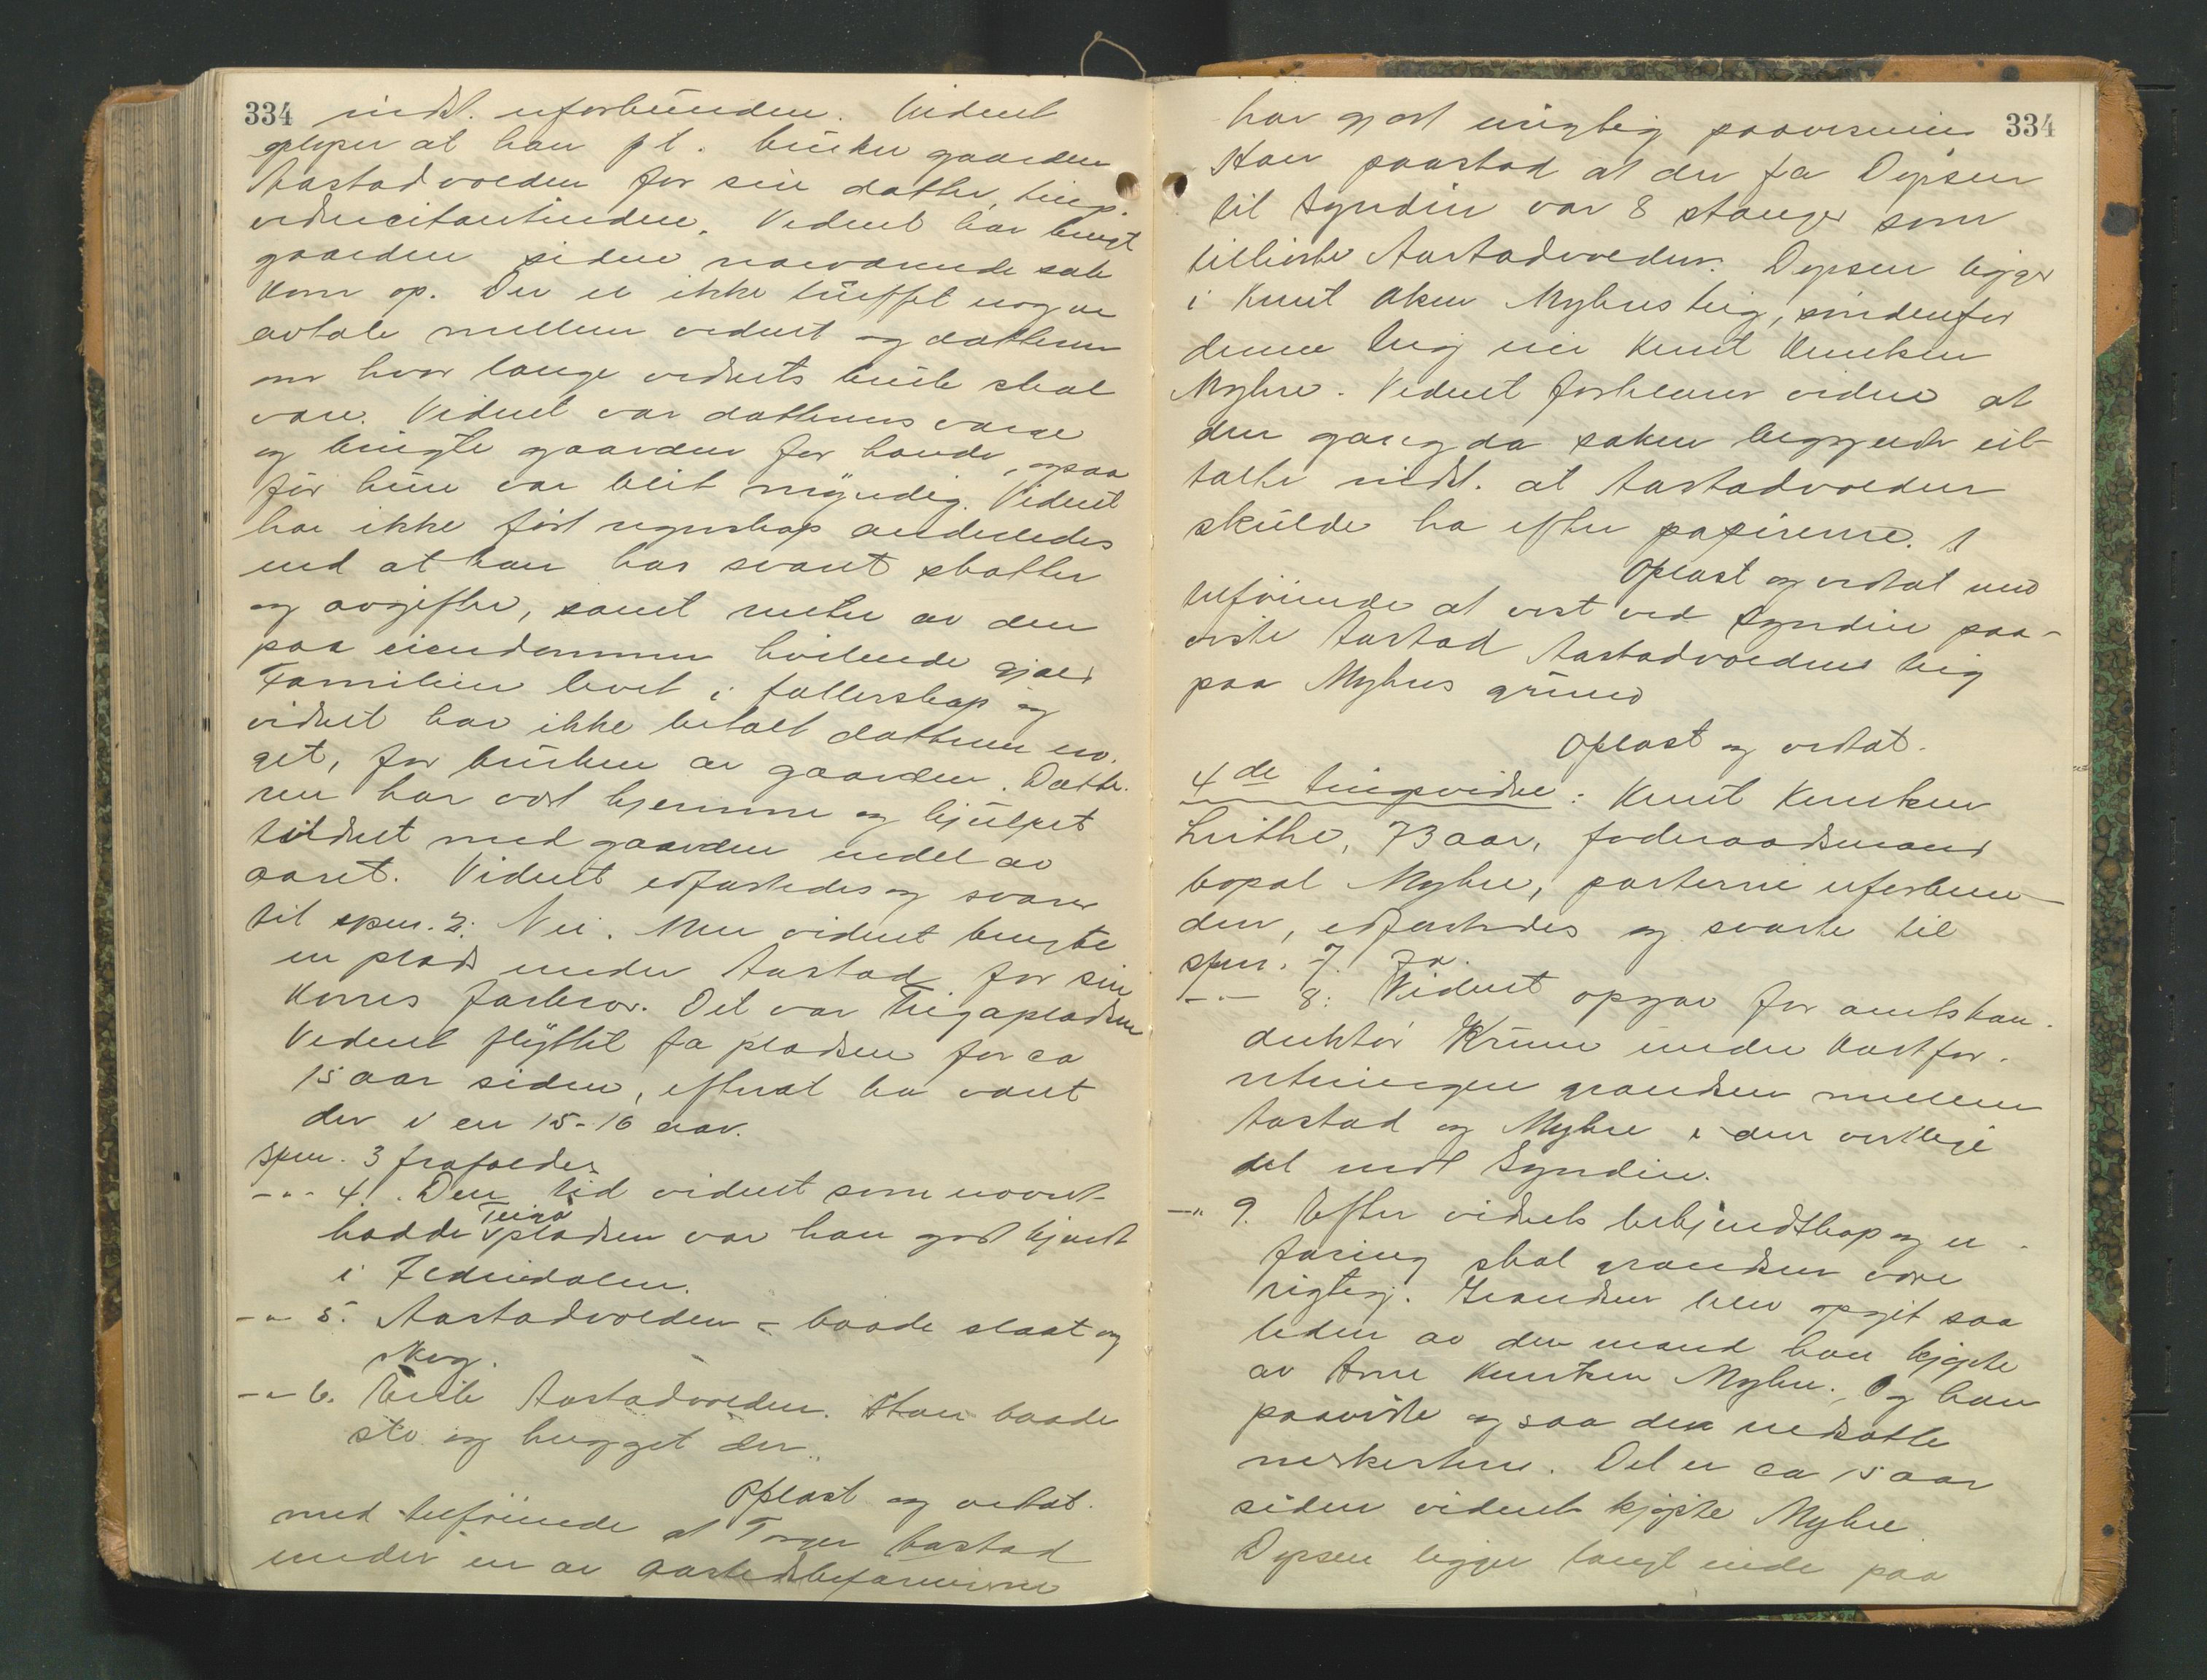 334
indst. uforbunden. Vidnet
oplyser at han f.t. bruker gaarden
Aastadvolden for sin datter, ting-
vidnecitantinden. Vidnet har brugt
gaarden siden nærværende sak
kom op. Der er ikke truffet nogen
avtale mellem vidnet og datteren
om hvor lange vidnets bruk skal
vare. Vidnet var datterens værge
og brugte gaarden for hende, ogsaa
før hun var blit myndig. Vidnet
har ikke ført regnskap anderledes
end at han har svaret skatter
og avgifter, samt renter av den
paa eiendommen hvilende gjæld
Familien levet i fællerskap og
vidnet har ikke betalt datteren no-
get, for bruken av gaarden. Datte-
ren har vært hjemme og hjulpet
vidnet med gaarden endel av
aaret. Vidnet edfæstedes og svarer
til spm. 2: Nei. Men vidnet brugte
en plads under Aastad for sin
kones farbror. Det var Teigapladsen
Vidnet flyttet fra pladsen for ca
15 aar siden, efterat ha været
der i en 15-16 aar.
Spm. 3 frafaldes
-"- 4. Den tid vidnet som nævnt
hadde Teigapladsen var han godt kjendt
i Fledndalen.
-"- 5. Aastadvolden - baade slaat og
skog.
-"- 6. Bruk Aastadvolden. Han baade
slo og hugget der.
Oplæst og vedtat.
med tilføiende at Torger Aastad
under en av aastedsbefaringerne
334
har gjort urigtig paavisning
Han paastod at der fra Dypsen
til Syndin var 8 stanger som
tilhørte Aastadvolden. Dypsen ligger
i Knut Olsen Myhres teig, søndenfor
denne teig eier Knut Knutsen
Myhre. Vidnet forklarer videre at
den gang da saken begyndte ut-
talte indst. at Aastadvolden
skulde ha efter papirerne.
Oplæst og vedtat med
tilføiende at vest ved Syndin paa-
viste Aastad Aastadvoldens teig
paa Myhres grund
Oplæst og vedtat.
4de tingsvidne: Knut Knutsen
Lrithe, 73 aar, føderaadsmand
bopæl Myhre, parterne uforbun-
den, edfæstedes og svarte til
spm. 7. Ja.
-"- 8: Vidnet opgav for amtskon-
duktør Krum under kartfor-
retningen grændsen mellem
Aastad og Myhre i den vestlige
del mot Syndin.
-"- 9. Efter vidnets bekjendtskap og er-
faring skal grændsen være
rigtig. Grændsen blev opgit saa-
leden av den mand han kjøpte
av Arne Knutsen Myhre. Og han
paaviste ogsaa den nedsatte
merkesten. Det er ca 15 aar
siden vidnet kjøpte Myhre
Dypsen ligger langt inde paa